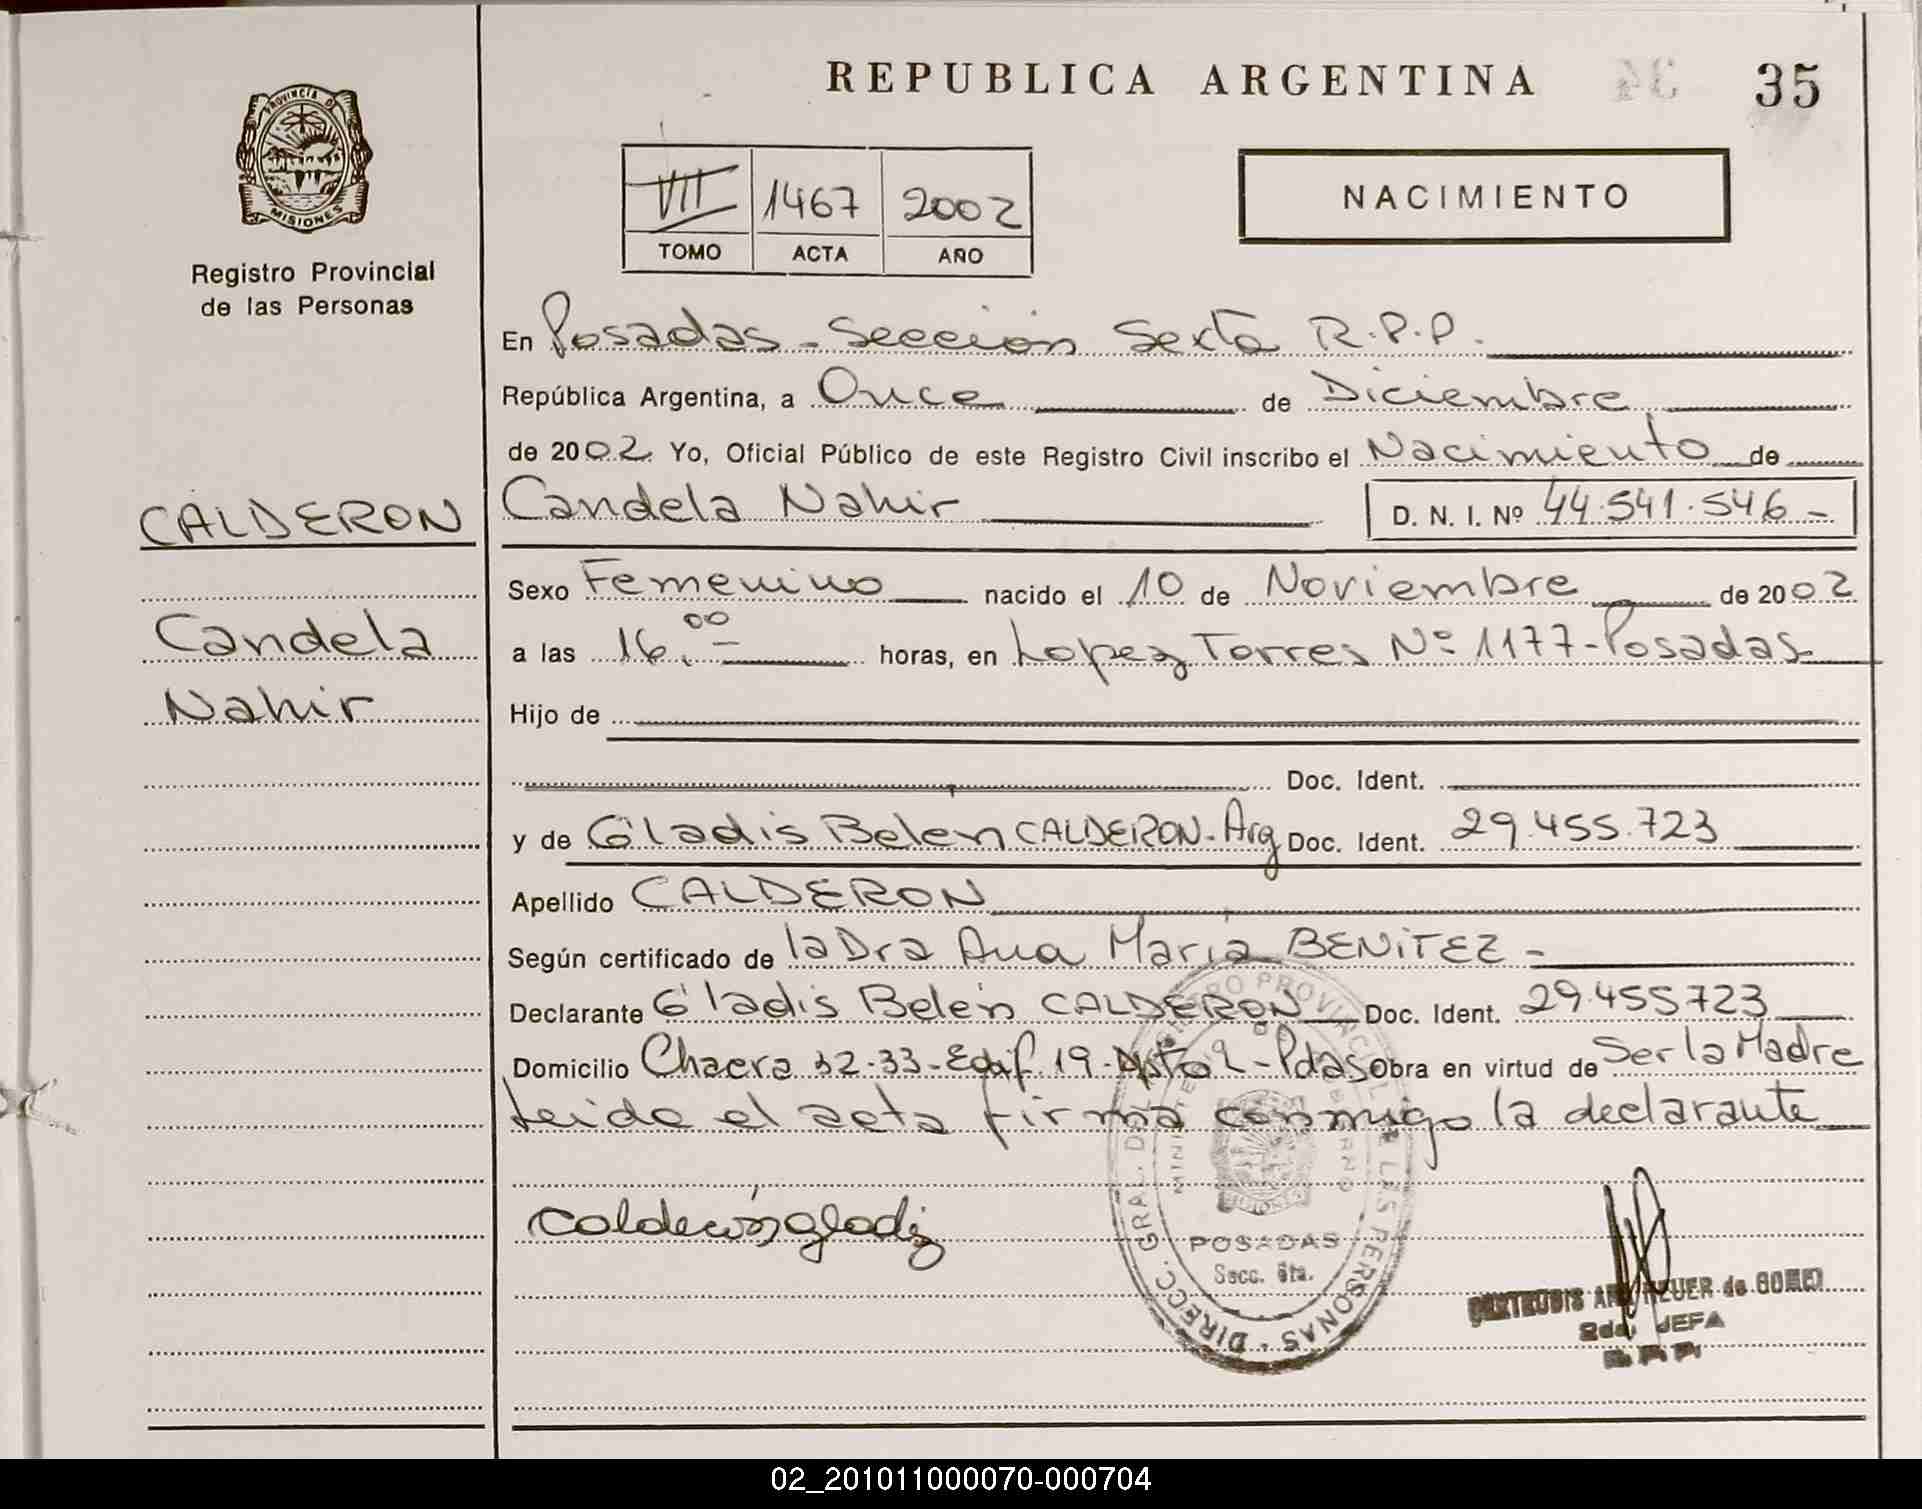 REPUBLICA ARGENTINA 35
PROVINCIA DE
MISIONES
Registro Provincial
de las Personas
VII 1467 2002
TOMO ACTA AÑO
NACIMIENTO
En Posadas - Sección Sexta R.P.P.
República Argentina, a Once de Diciembre
de 2002 Yo, Oficial Público de este Registro Civil inscribo el Nacimiento de
CALDERON
Candela
Nahir
Candela Nahir D. N. I. Nº 44.541.546 -
Sexo Femenino nacido el 10 de Noviembre de 2002
a las 16.00 horas, en Lopez Torres Nº 1177 - Posadas
Hijo de
Doc. Ident.
y de Gladis Belen CALDERON - Arg Doc. Ident. 29.455.723
Apellido CALDERON
Según certificado de la Dra Ana Maria BENITEZ -
Declarante Gladis Belén CALDERON Doc. Ident. 29.455723
Domicilio Chacra 32-33 - Edif. 19 - - Pdas Obra en virtud de Ser la Madre
Leida el acta firma conmigo la declarante
Calderón gladis
DIRECC. GRAL. DEL REGISTRO PROVINCIAL DE LAS PERSONAS
MINISTERIO DE GOBIERNO
POSADAS
Secc. 6ta.
de GOMEZ
2da. JEFA
R.P.P.
02_201011000070-000704